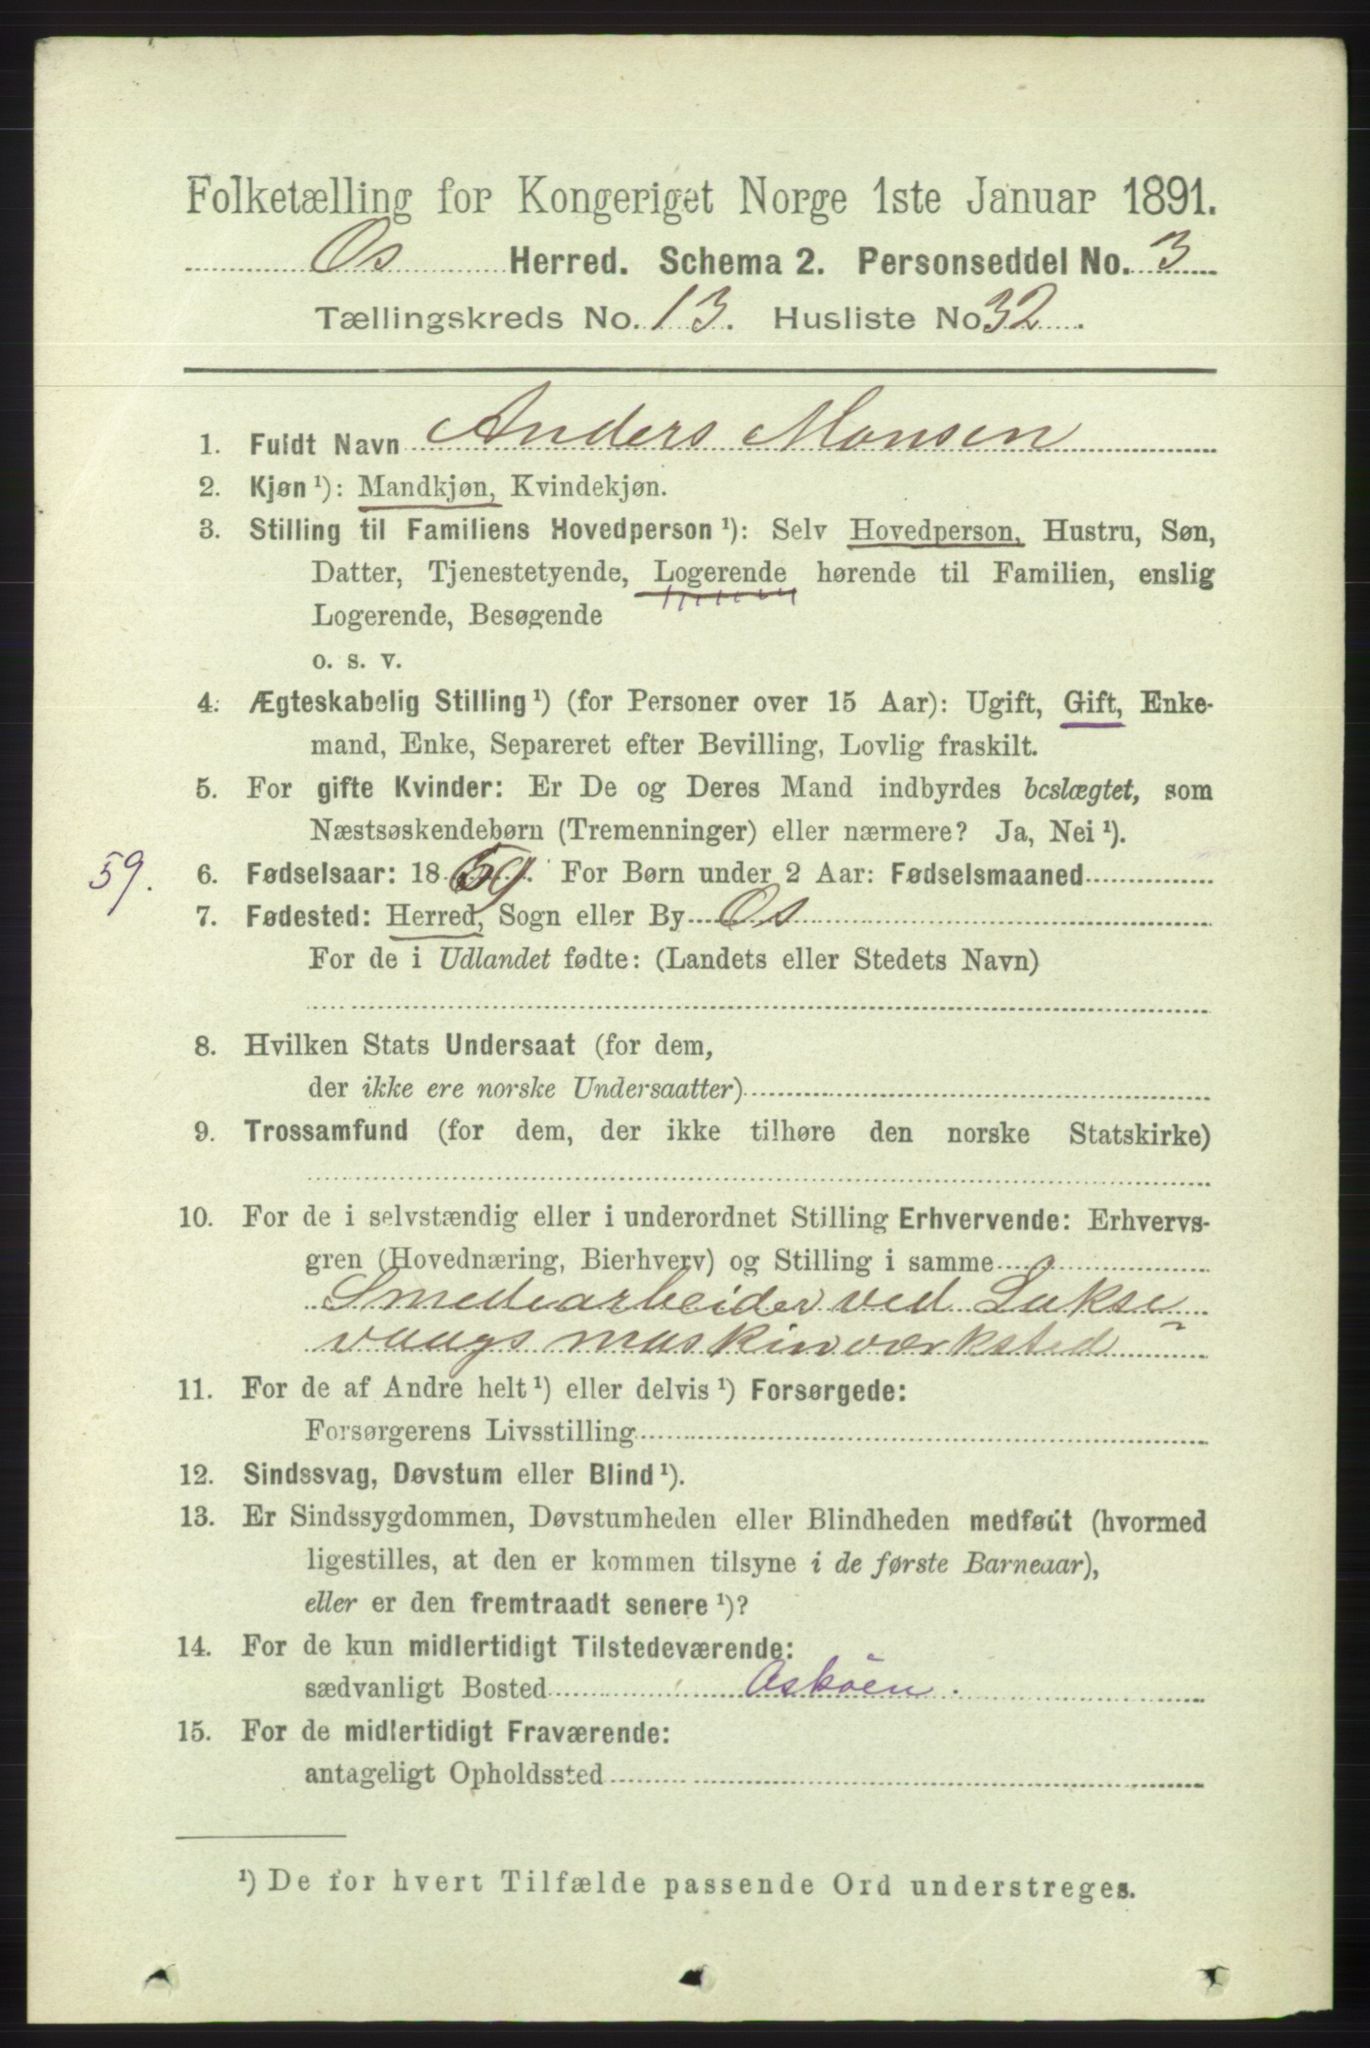 Folketælling for Kongeriget Norge 1ste Januar 1891.
Os Herred. Schema 2. Personseddel No. 3
Tællingskreds No. 13. Husliste No 32.
1. Fuldt Navn Anders Monsen
2. Kjøn ¹): Mandkjøn, Kvindekjøn.
3. Stilling til Familiens Hovedperson ¹): Selv Hovedperson, Hustru, Søn,
Datter, Tjenestetyende, Logerende hørende til Familien, enslig
Logerende, Besøgende
o. s. v.
4. Ægteskabelig Stilling ¹) (for Personer over 15 Aar): Ugift, Gift, Enke-
mand, Enke, Separeret efter Bevilling, Lovlig fraskilt.
5. For gifte Kvinder: Er De og Deres Mand indbyrdes beslægtet, som
Næstsøskendebørn (Tremenninger) eller nærmere? Ja, Nei ¹).
59. 6. Fødselsaar: 1859. For Børn under 2 Aar: Fødselsmaaned
7. Fødested: Herred, Sogn eller By Os
For de i Udlandet fødte: (Landets eller Stedets Navn)
8. Hvilken Stats Undersaat (for dem,
der ikke ere norske Undersaatter)
9. Trossamfund (for dem, der ikke tilhøre den norske Statskirke)
10. For de i selvstændig eller i underordnet Stilling Erhvervende: Erhvervs-
gren (Hovednæring, Bierhverv) og Stilling i samme
Smedearbeider ved Lakse
vaags maskinværksted
11. For de af Andre helt ¹) eller delvis ¹) Forsørgede:
Forsørgerens Livsstilling
12. Sindssvag, Døvstum eller Blind ¹).
13. Er Sindssygdommen, Døvstumheden eller Blindheden medfødt (hvormed
ligestilles, at den er kommen tilsyne i de første Barneaar),
eller er den fremtraadt senere ¹)?
14. For de kun midlertidigt Tilstedeværende:
sædvanligt Bosted Askøen.
15. For de midlertidigt Fraværende:
antageligt Opholdssted
¹) De for hvert Tilfælde passende Ord understreges.